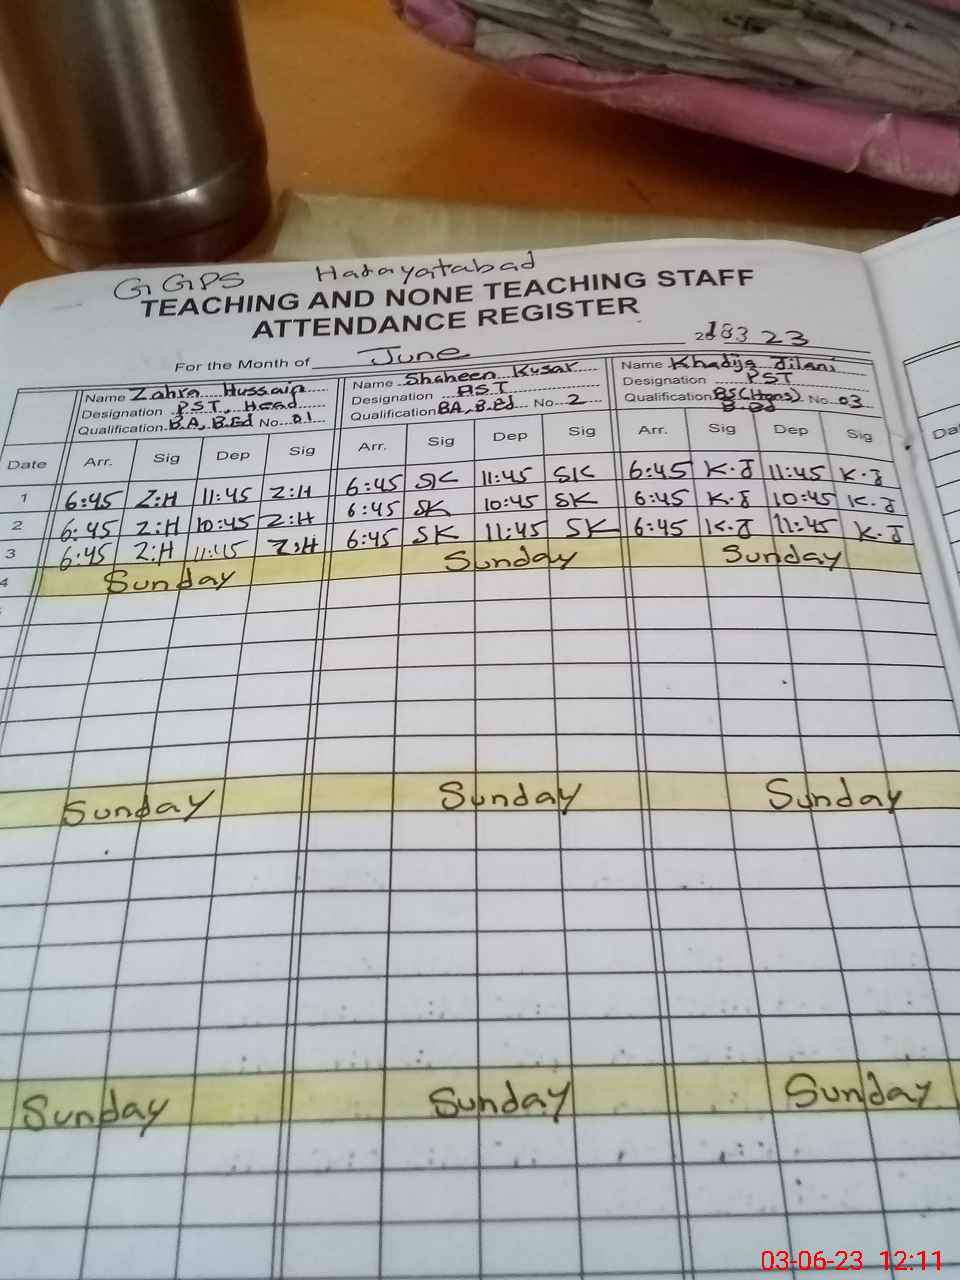 GGPS Hatayatabad
TEACHING AND NONE TEACHING STAFF
ATTENDANCE REGISTER
For the Month of June 23
Name Zahra Hussain Name Shaheen Kusar Name Khadija Jilani
Designation PST, Head Designation Designation PST
Qualification B.A, B.Ed No 01 Qualification BA, B.Ed No 2 Qualification BS(Hons) No 03
B.Ed
Date Arr. Sig Dep Sig Arr. Sig Dep Sig Arr. Sig Dep Sig Da
1 6:45 Z:H 11:45 Z:H 6:45 SK 11:45 SK 6:45 K.J 11:45 K.J
2 6:45 Z:H 10:45 Z:H 6:45 SK 10:45 SK 6:45 K.J 10:45 K.J
3 6:45 Z:H 11:45 Z:H 6:45 SK 11:45 SK 6:45 K.J 11:45 K.J
4 Sunday Sunday Sunday
Sunday Sunday Sunday
Sunday Sunday Sunday
03-06-23 12:11